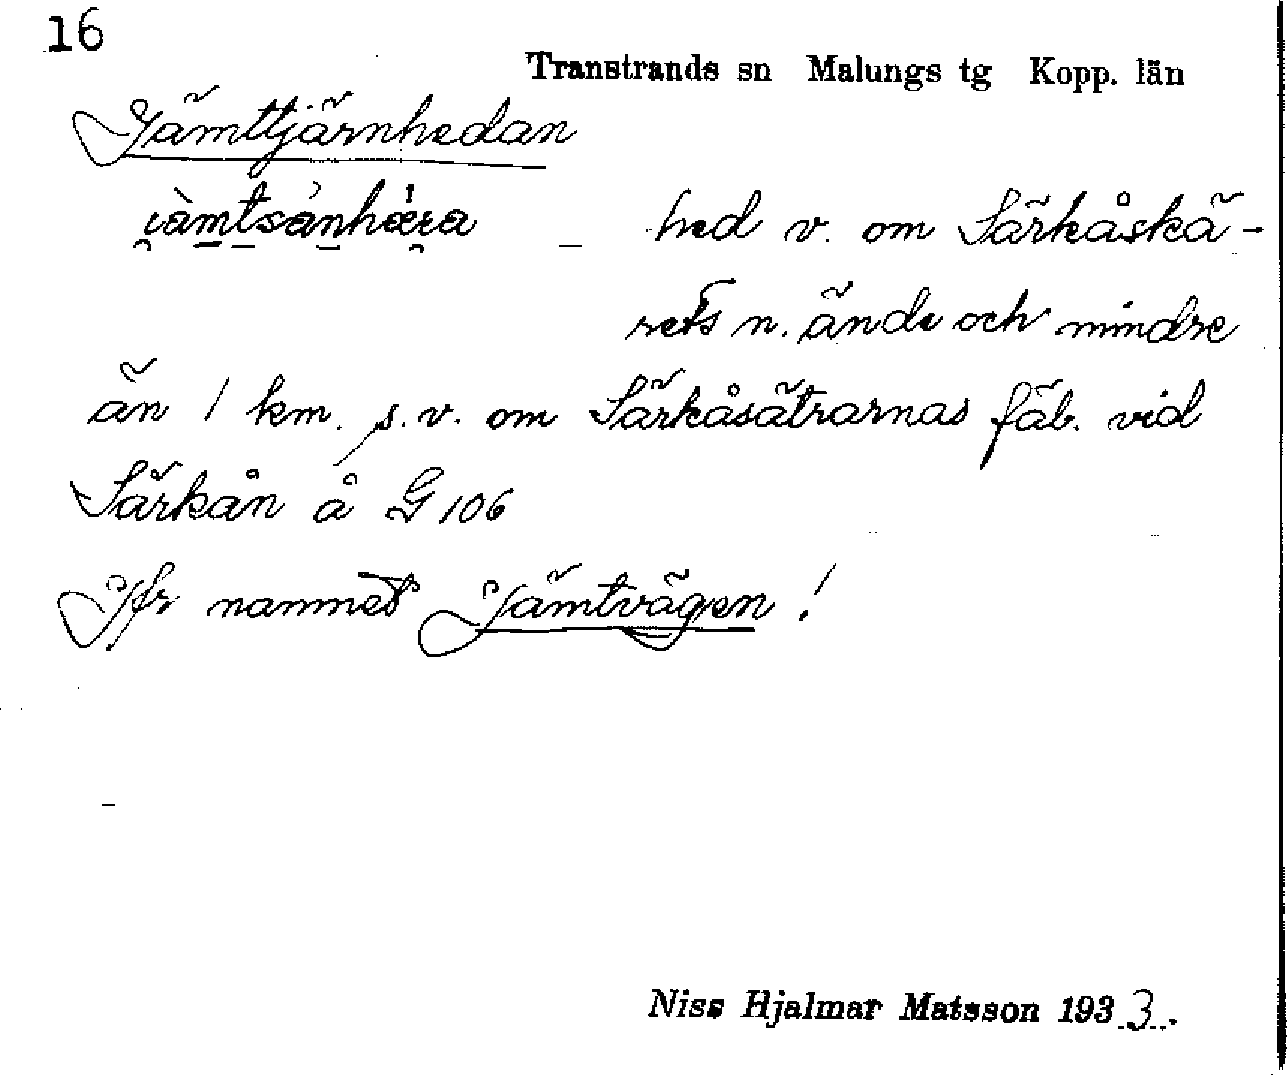 16
Transtrands sn Malungs tg Kopp. län
Jämttjärnhedan
hed v. om Särkåskä-
rets n. ände och mindre
än 1 km. s.v. om Särkåsätrarnas fäb. vid
Särkån å G 106
Jfr namnet Jämtvägen!
Niss Hjalmar Matsson 1933.